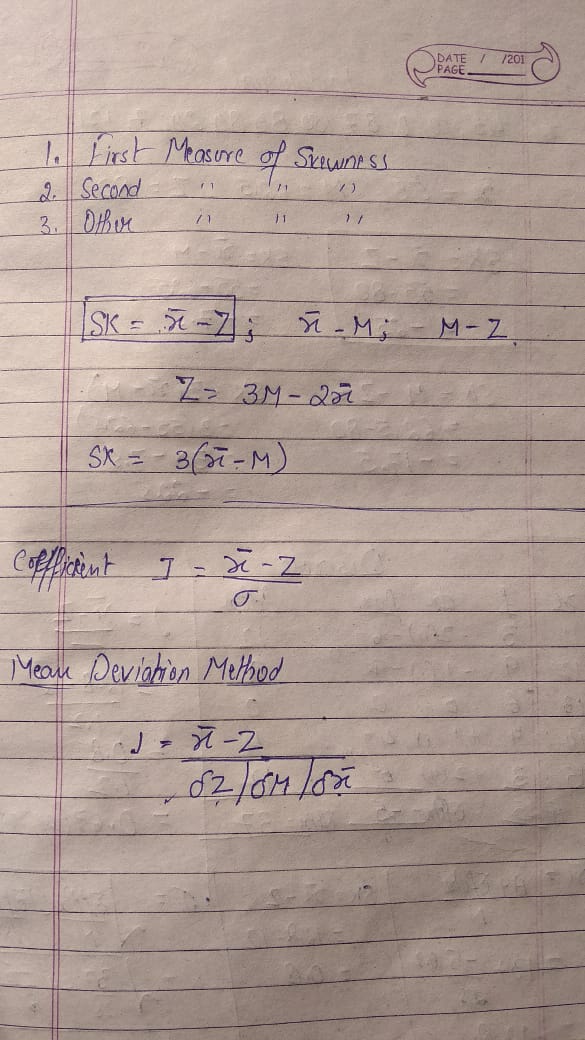 DATE / /201
PAGE
1. First Measure of Skewness
2. Second " " "
3. Other " " "
SK = x̄ - Z ; x̄ - M ; M - Z.
Z = 3M - 2x̄
SK = 3(x̄ - M)
Coefficient J = x̄ - Z
σ
Mean Deviation Method
J = x̄ - Z
δZ / δM / δx̄